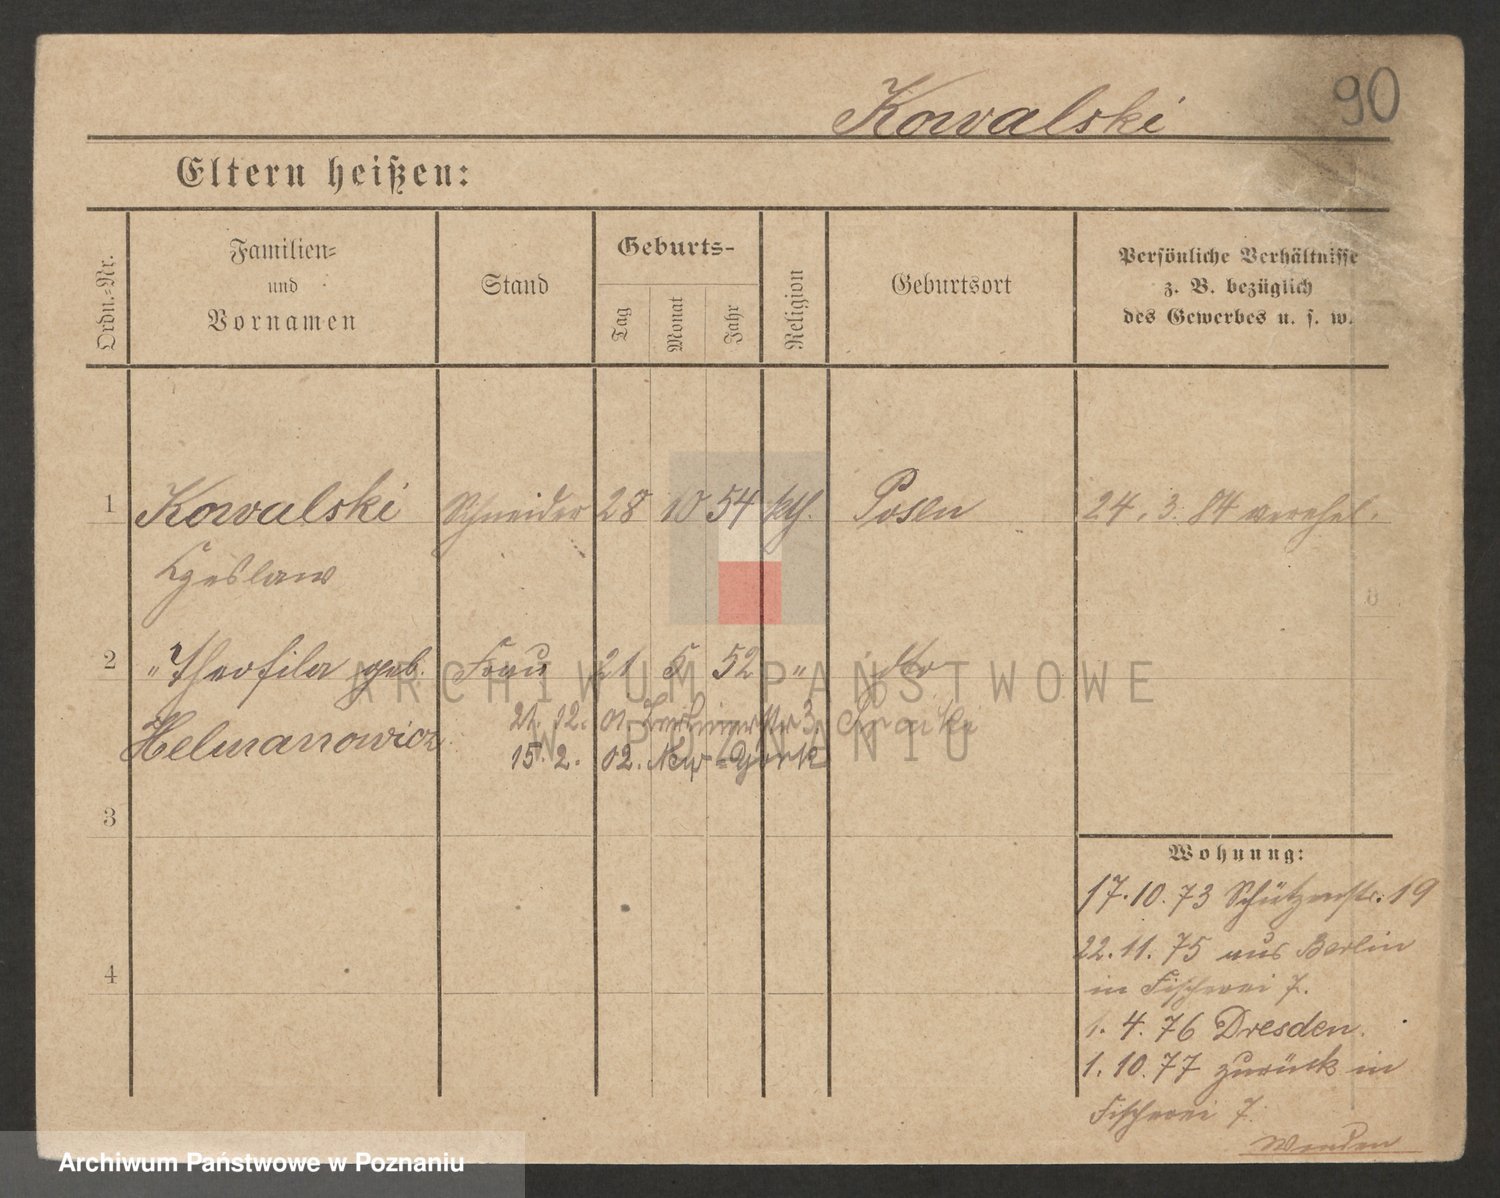 Kowalski 90
Eltern heißen:
Ordn.-Nr.
Familien-
und
Vornamen
Stand
Geburts-
Tag
Monat
Jahr
Religion
Geburtsort
Persönliche Verhältnisse
z. B. bezüglich
des Gewerbes u. s. w.
1 Kowalski Schneider 28 10 54 kth. Posen 24. 3. 84 verehel.
Czeslaw
2 " Theofila geb. Frau 21 5 52 " do
Helmanowicz
21. 12. 01 3,
15. 2. 02. New-York
ARCHIWUM PAŃSTWOWE
W POZNANIU
3
4
Wohnung:
17. 10. 73 Schützenstr. 19
22. 11. 75 aus Berlin
in Fischerei 7.
1. 4. 76 Dresden.
1. 10. 77 zurück in
Fischerei 7.
Wenden
Archiwum Państwowe w Poznaniu